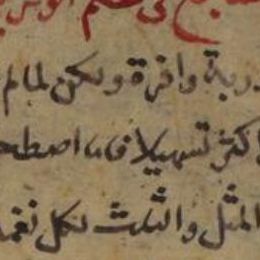 في علم
دربة وافرة ولكن لما لم
اكثر تسهيلا فاما اصطلح
المثل والثلث لكل نغمة